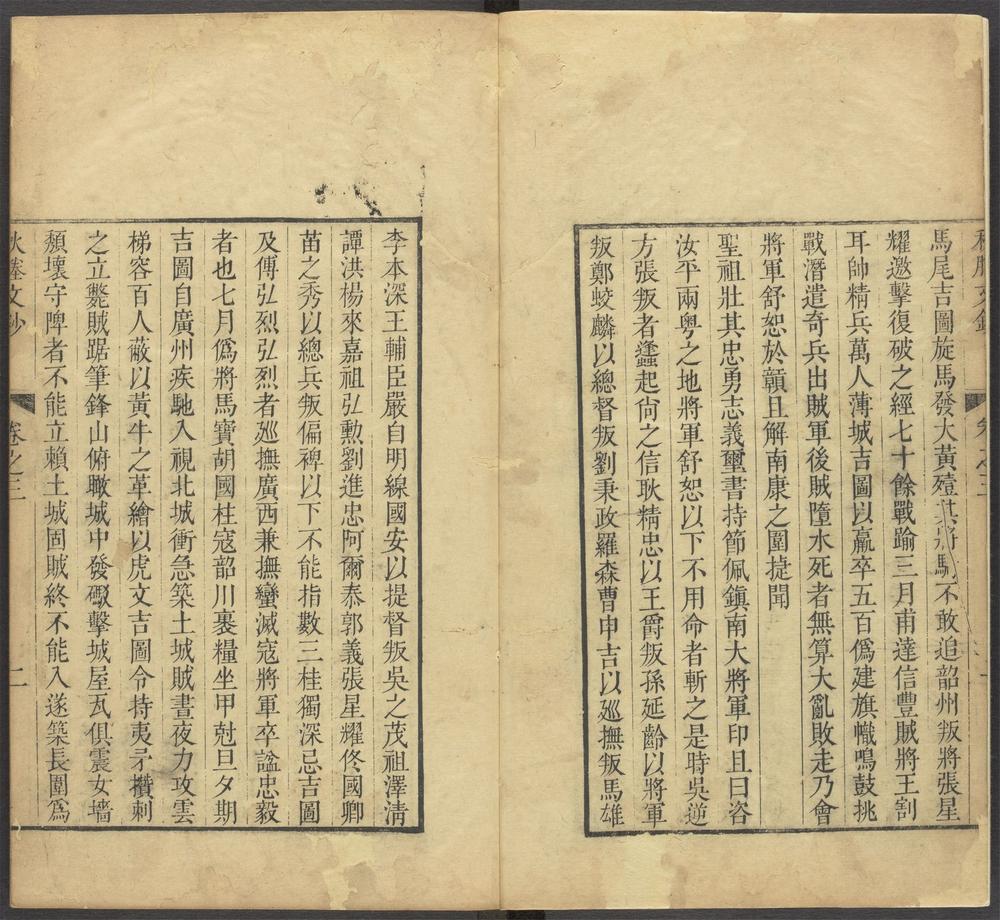 馬尾吉圖旋馬發大黃殪其將馳不敢追韶州叛將張星
耀邀擊復破之經七十餘戰踰三月甫達信豐賊將王割
耳帥精兵萬人薄城吉圖以羸卒五百僞建旗幟鳴鼓挑
戰潛遣奇兵出賊軍後賊墮水死者無算大亂敗走乃會
將軍舒恕於贑且解南康之圍捷聞
聖祖壯其忠勇志義璽書持節佩鎮南大將軍印且曰咨
汝平兩粵之地將軍舒恕以下不用命者斬之是時吳逆
方張叛者蠭起尙之信耿精忠以王爵叛孫延齡以將軍
叛鄭蛟麟以總督叛劉秉政羅森曹申吉以廵撫叛馬雄
李本深王輔臣嚴自明線國安以提督叛吳之茂祖澤淸
譚洪楊來嘉祖弘勲劉進忠阿爾泰郭義張星耀佟國卿
苗之秀以總兵叛偏裨以下不能指數三桂獨深忌吉圖
及傅弘烈弘烈者廵撫廣西兼撫蠻滅寇將軍卒諡忠毅
者也七月僞將馬寶胡國柱寇韶川裹糧坐甲尅旦夕期
吉圖自廣州疾馳入視北城衝急築土城賊晝夜力攻雲
梯容百人蔽以黃牛之革繪以虎文吉圖令持夷矛攢刺
之立斃賊踞筆鋒山俯瞰城中發礟擊城屋瓦俱震女墻
頽壞守陴者不能立賴土城固賊終不能入遂築長圍爲
卷之三
二